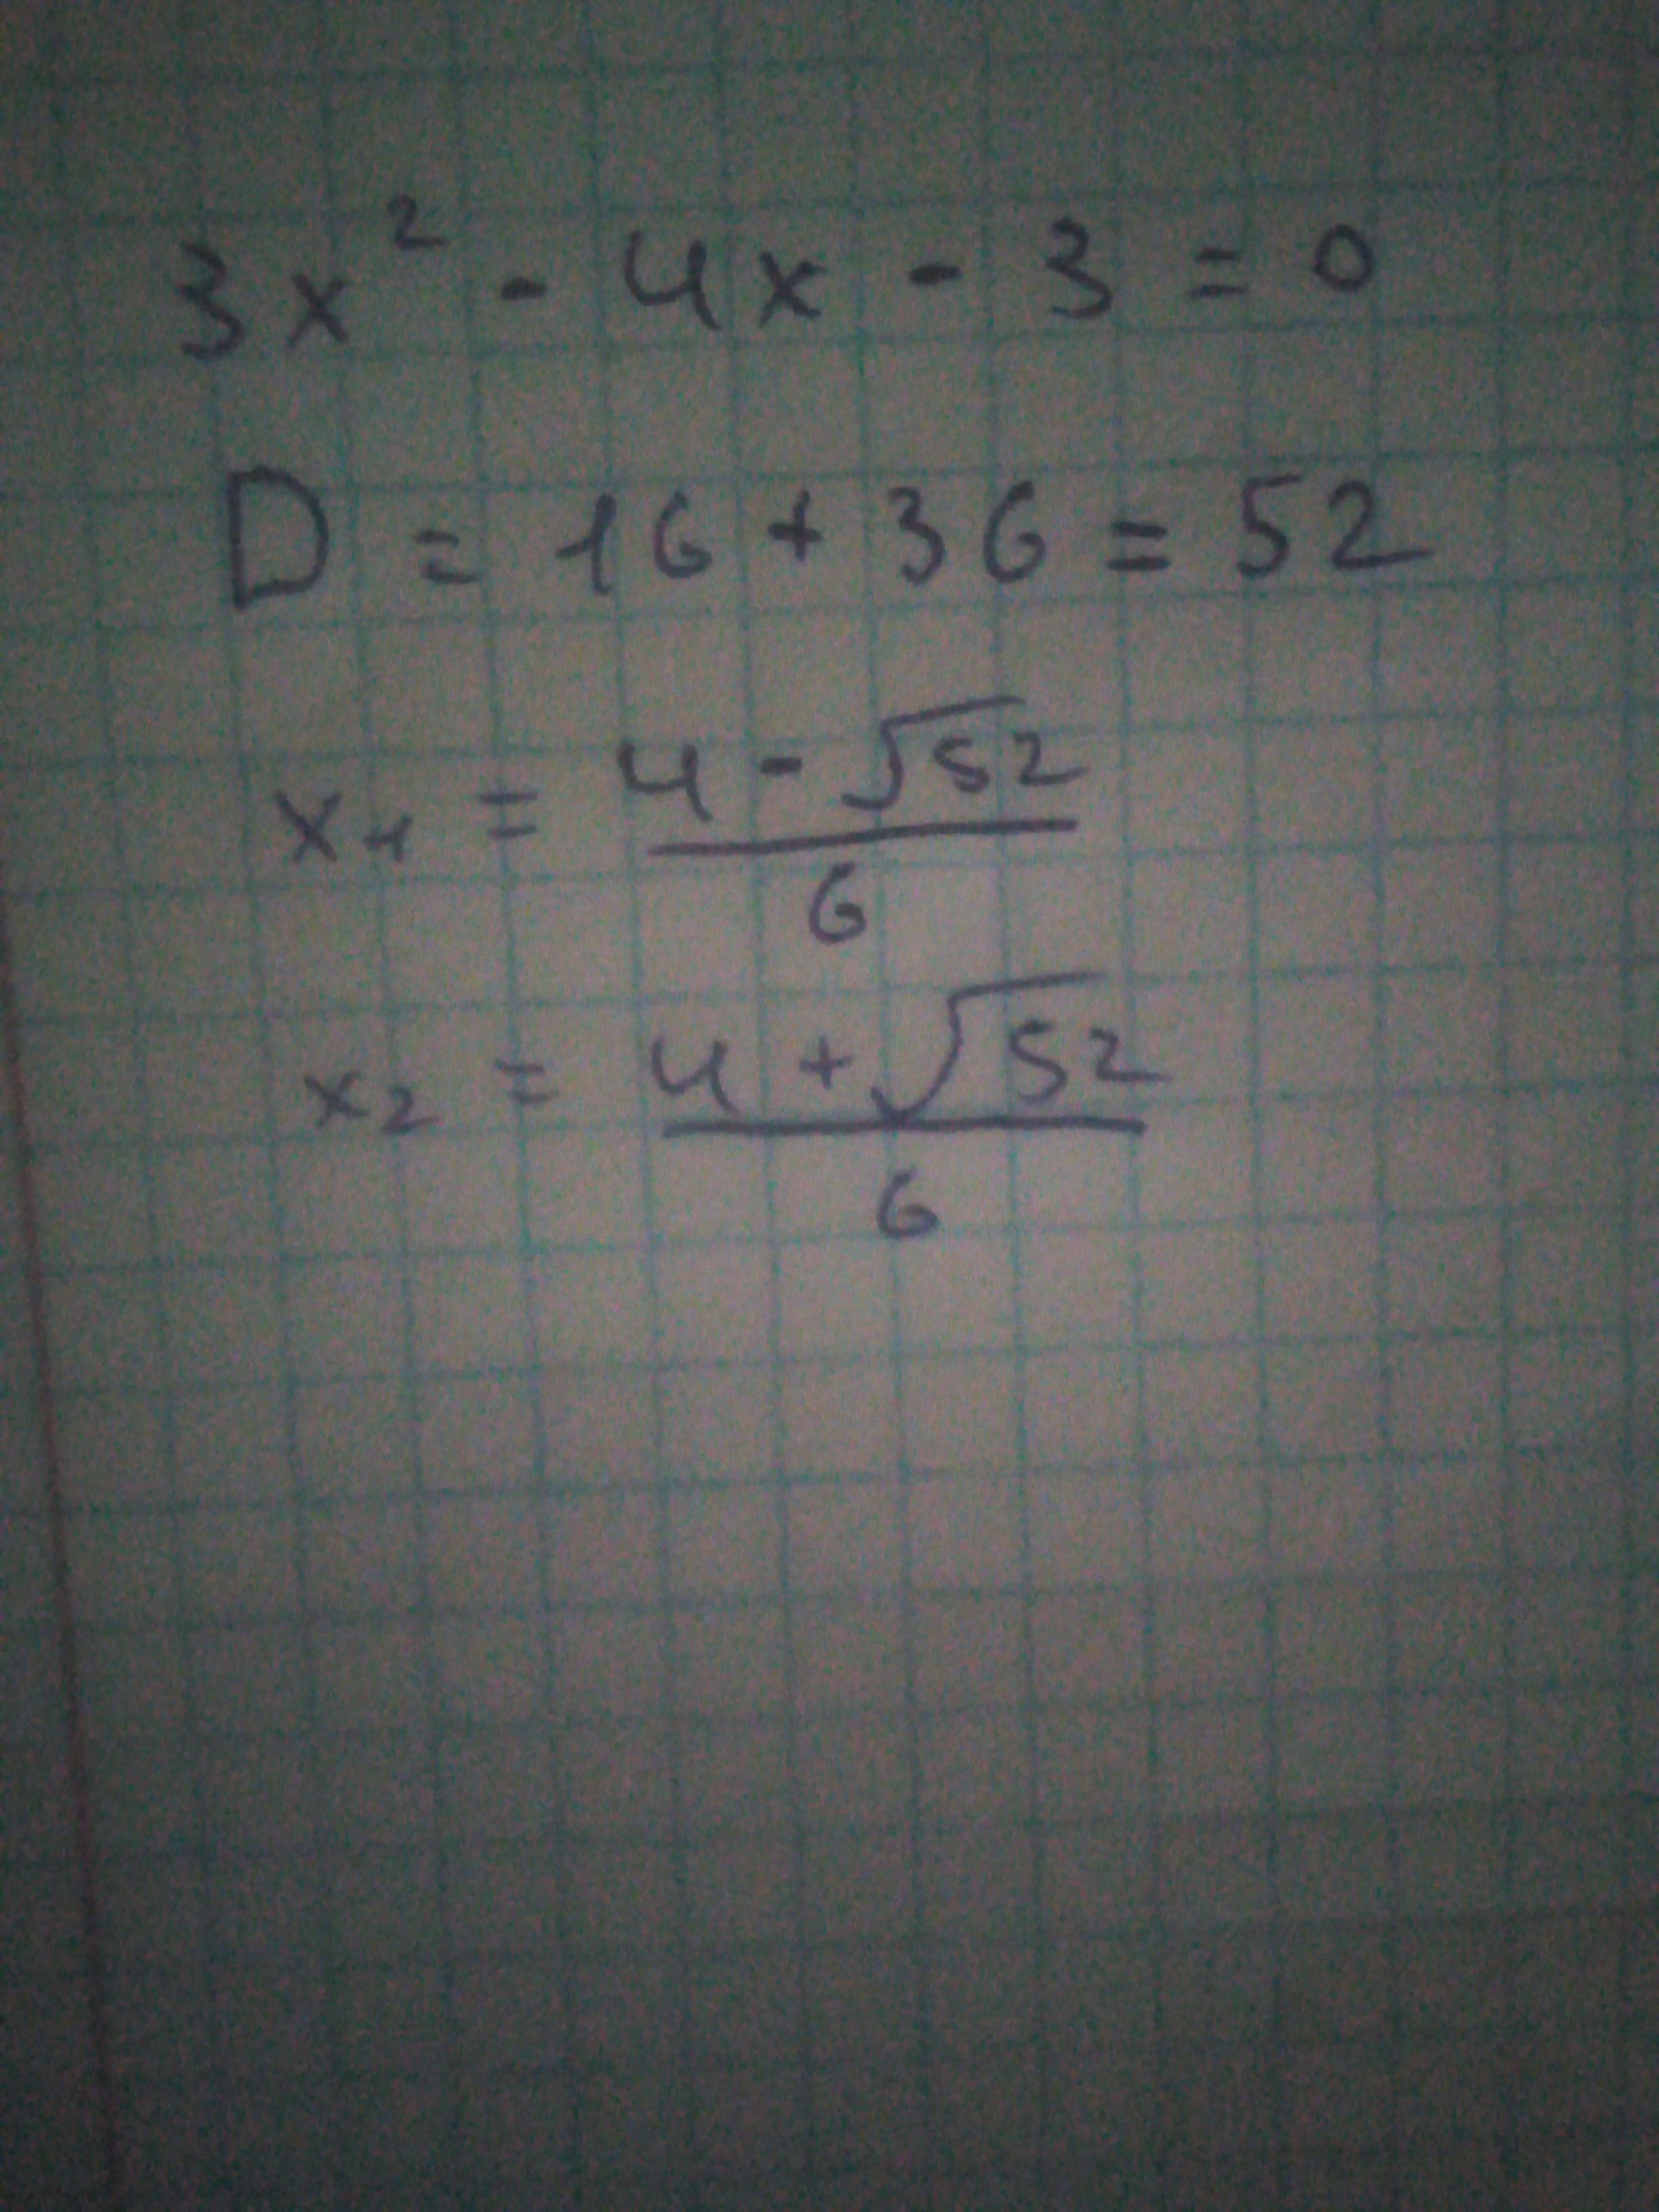 3x² - 4x - 3 = 0
D = 16 + 36 = 52
x₁ = (4 - √52) / 6
x₂ = (4 + √52) / 6